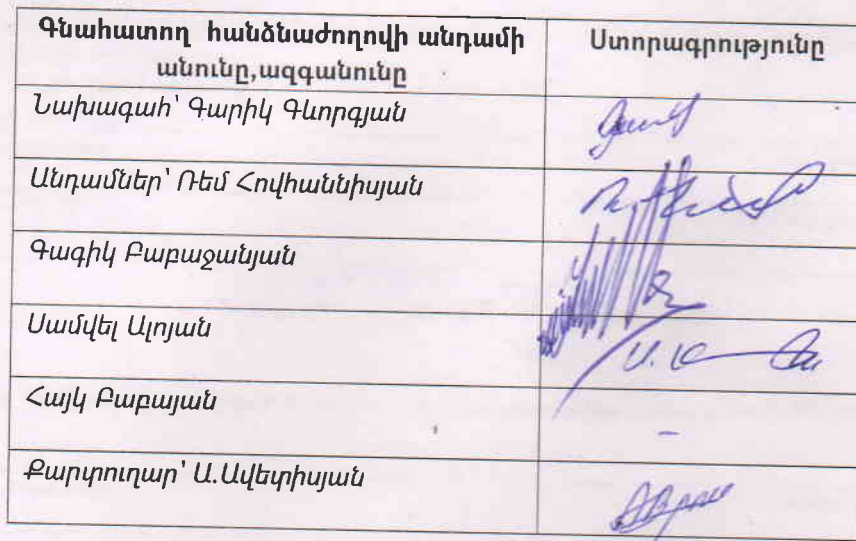 Գնահատող հանձնաժողովի անդամի
անունը,ազգանունը
Ստորագրությունը
Նախագահ՝ Գարիկ Գևորգյան
Անդամներ՝ Ռեմ Հովհաննիսյան
Գագիկ Բաբաջանյան
Սամվել Ալոյան
Հայկ Բաբայան
-
Քարտուղար՝ Ա.Ավետիսյան